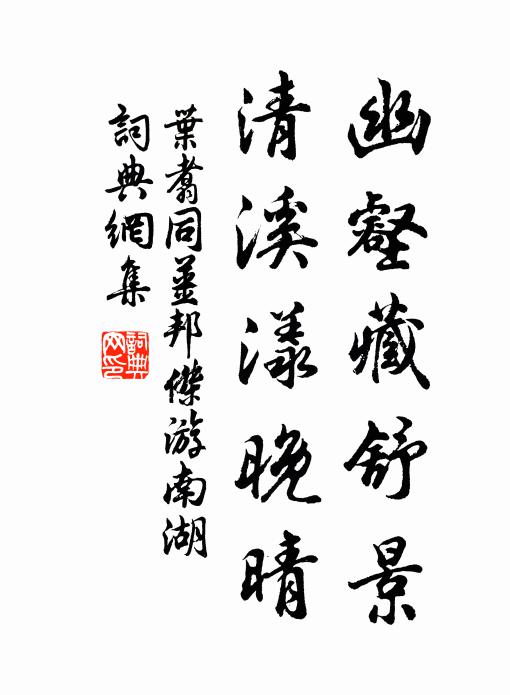 幽壑藏舒景
清溪漾晚晴
葉翥同姜邦傑游南湖
詞典網集
詞典网印